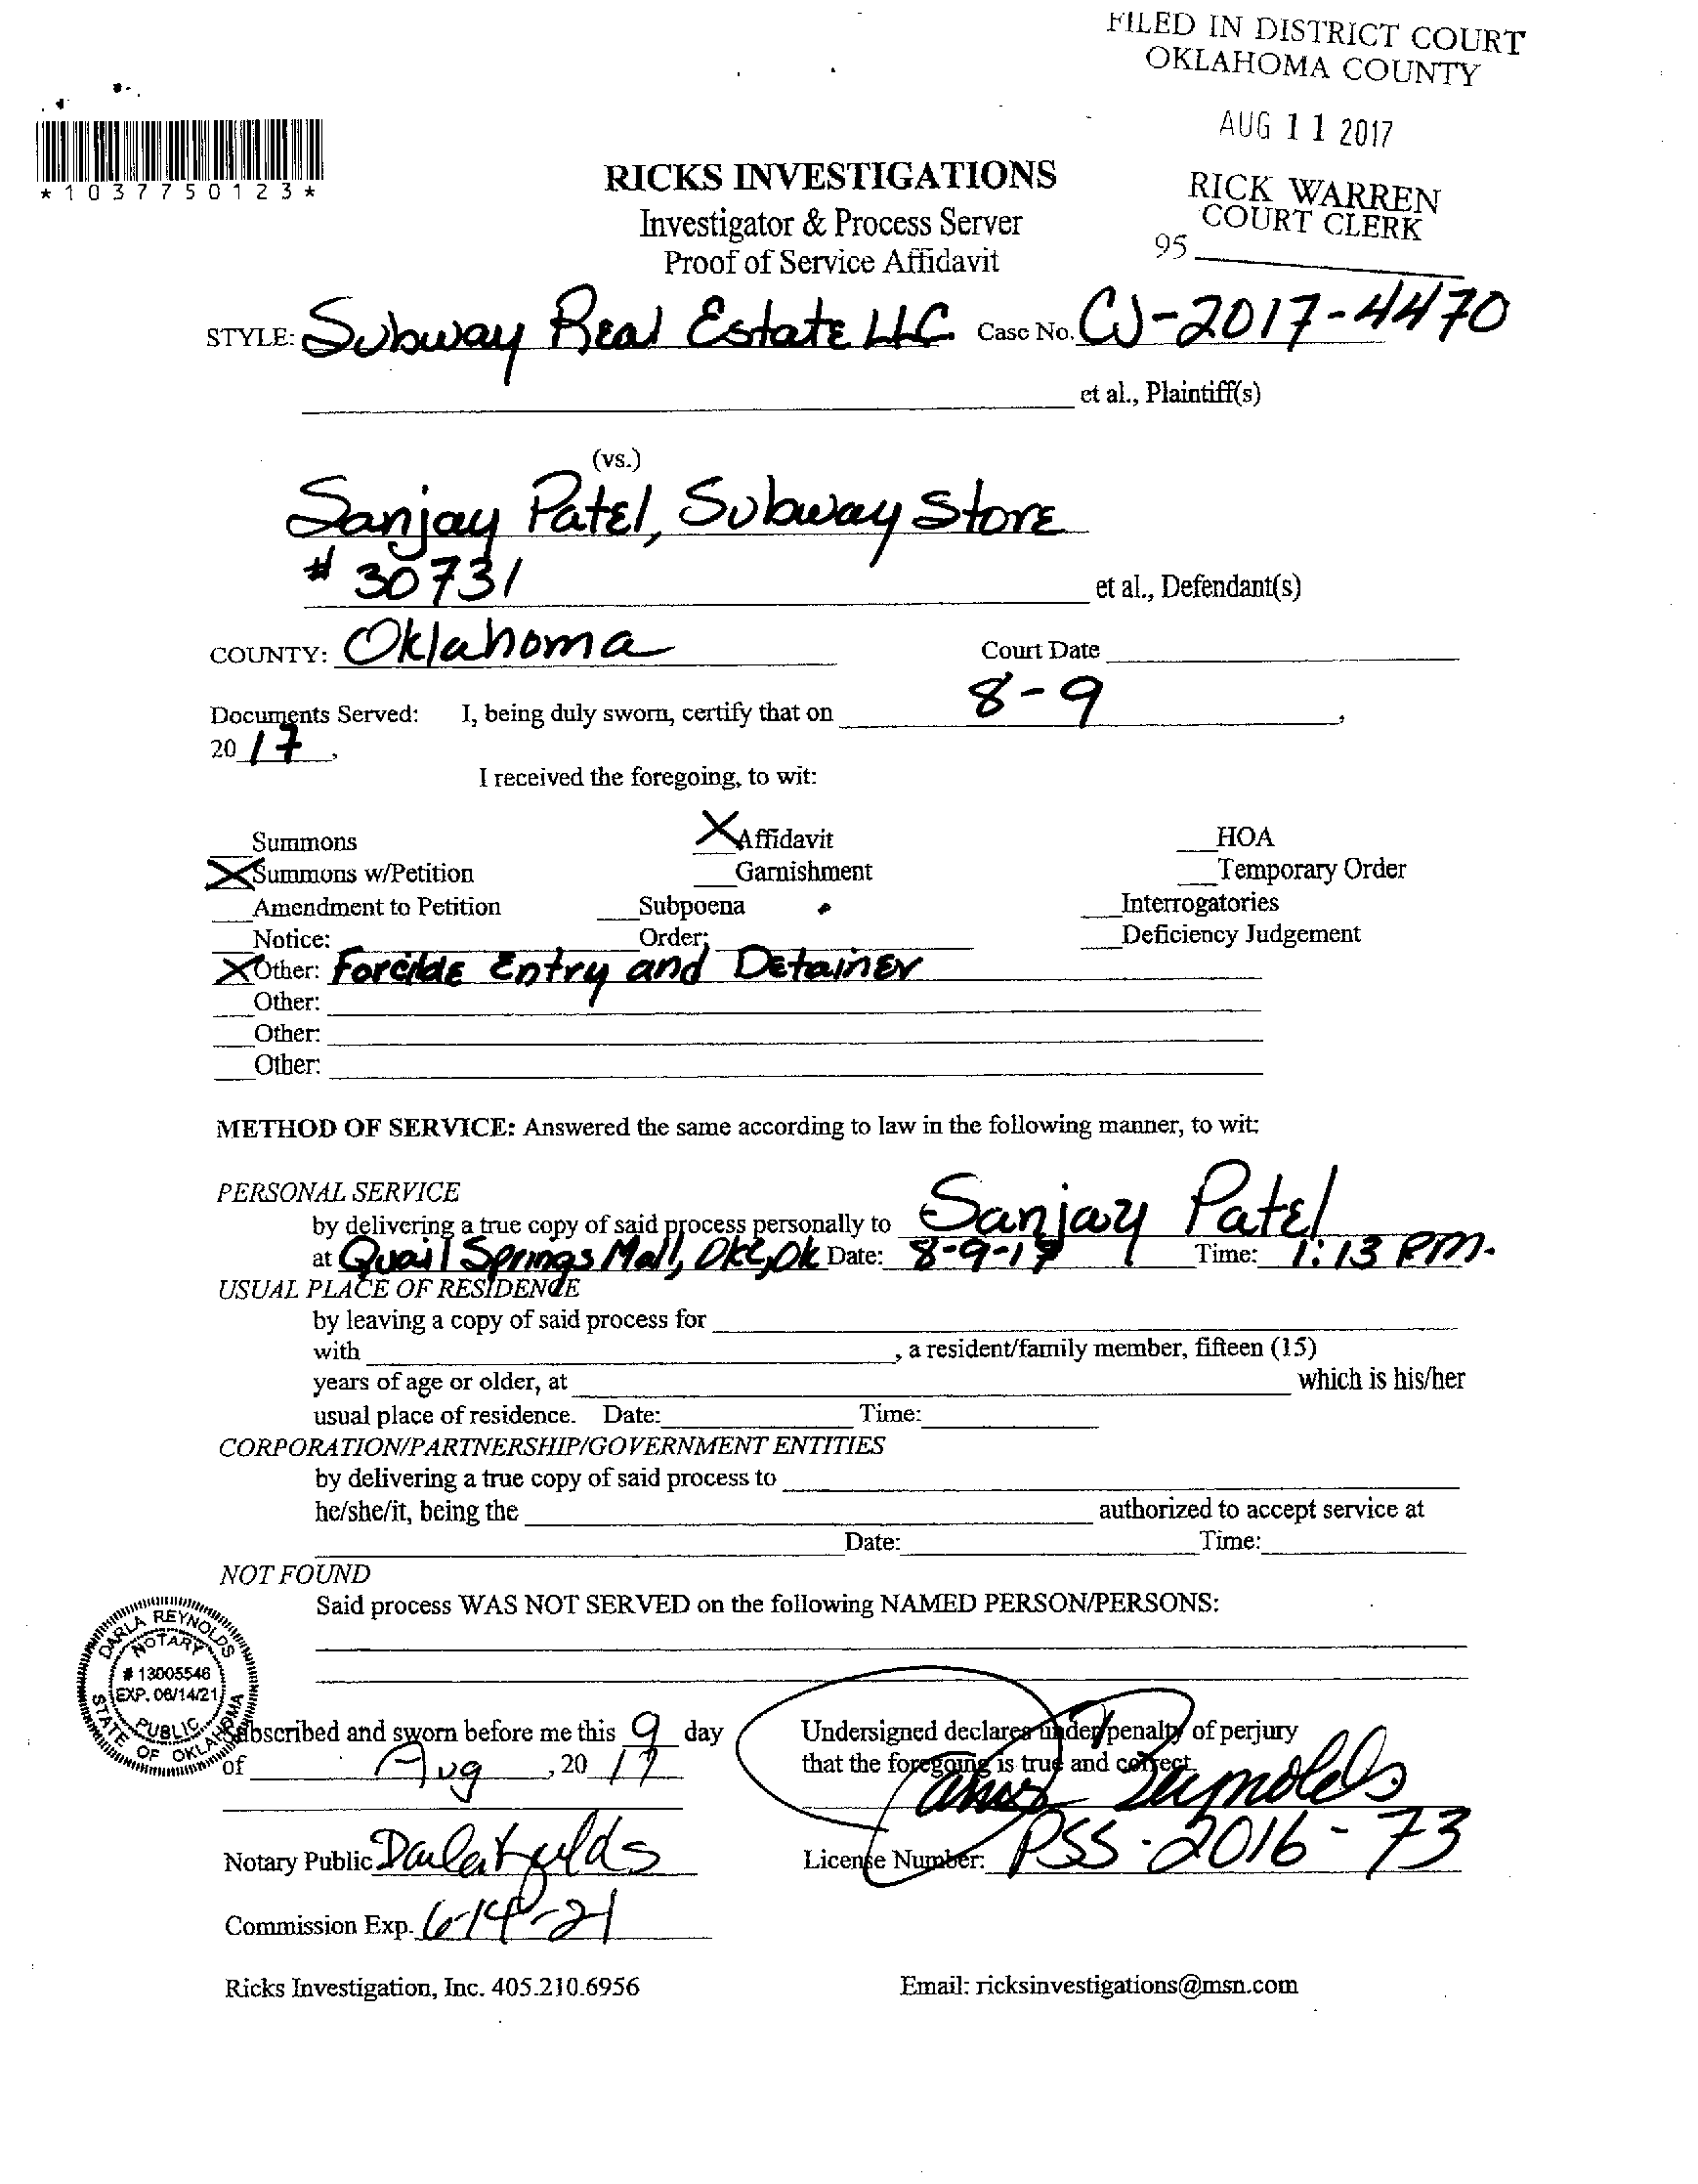 FILED IN DISTRICT COURT
OKLAHOMA COUNTY
AUG 11 2017
RICK WARREN
COURT CLERK
95
*1037750123*
RICKS INVESTIGATIONS
Investigator & Process Server
Proof of Service Affidavit
STYLE: Subway Real Estate LLC Case No. CJ-2017-4470
et al., Plaintiff(s)
(vs.)
Sanjay Patel, Subway Store
# 30731
et al., Defendant(s)
COUNTY: Oklahoma Court Date
Documents Served: I, being duly sworn, certify that on 8-9,
20 17,
I received the foregoing, to wit:
Summons X Affidavit HOA
X Summons w/Petition Garnishment Temporary Order
Amendment to Petition Subpoena Interrogatories
Notice: Order: Deficiency Judgement
X Other: Forcible Entry and Detainer
Other:
Other:
Other:
METHOD OF SERVICE: Answered the same according to law in the following manner, to wit:
PERSONAL SERVICE
by delivering a true copy of said process personally to Sanjay Patel
at Quail Springs Mall, OKC, OK Date: 8-9-17 Time: 1:13 PM.
USUAL PLACE OF RESIDENCE
by leaving a copy of said process for
with , a resident/family member, fifteen (15)
years of age or older, at which is his/her
usual place of residence. Date: Time:
CORPORATION/PARTNERSHIP/GOVERNMENT ENTITIES
by delivering a true copy of said process to
he/she/it, being the authorized to accept service at
Date: Time:
NOT FOUND
Said process WAS NOT SERVED on the following NAMED PERSON/PERSONS:
DARLA REYNOLDS
NOTARY
# 13005546
EXP. 06/14/21
PUBLIC
STATE OF OKLAHOMA
Subscribed and sworn before me this 9 day Undersigned declares under penalty of perjury
of Aug, 20 17 that the foregoing is true and correct.
Reynolds
Notary Public License Number: PSS-2016-73
Commission Exp. 6-14-21
Ricks Investigation, Inc. 405.210.6956 Email: ricksinvestigations@msn.com